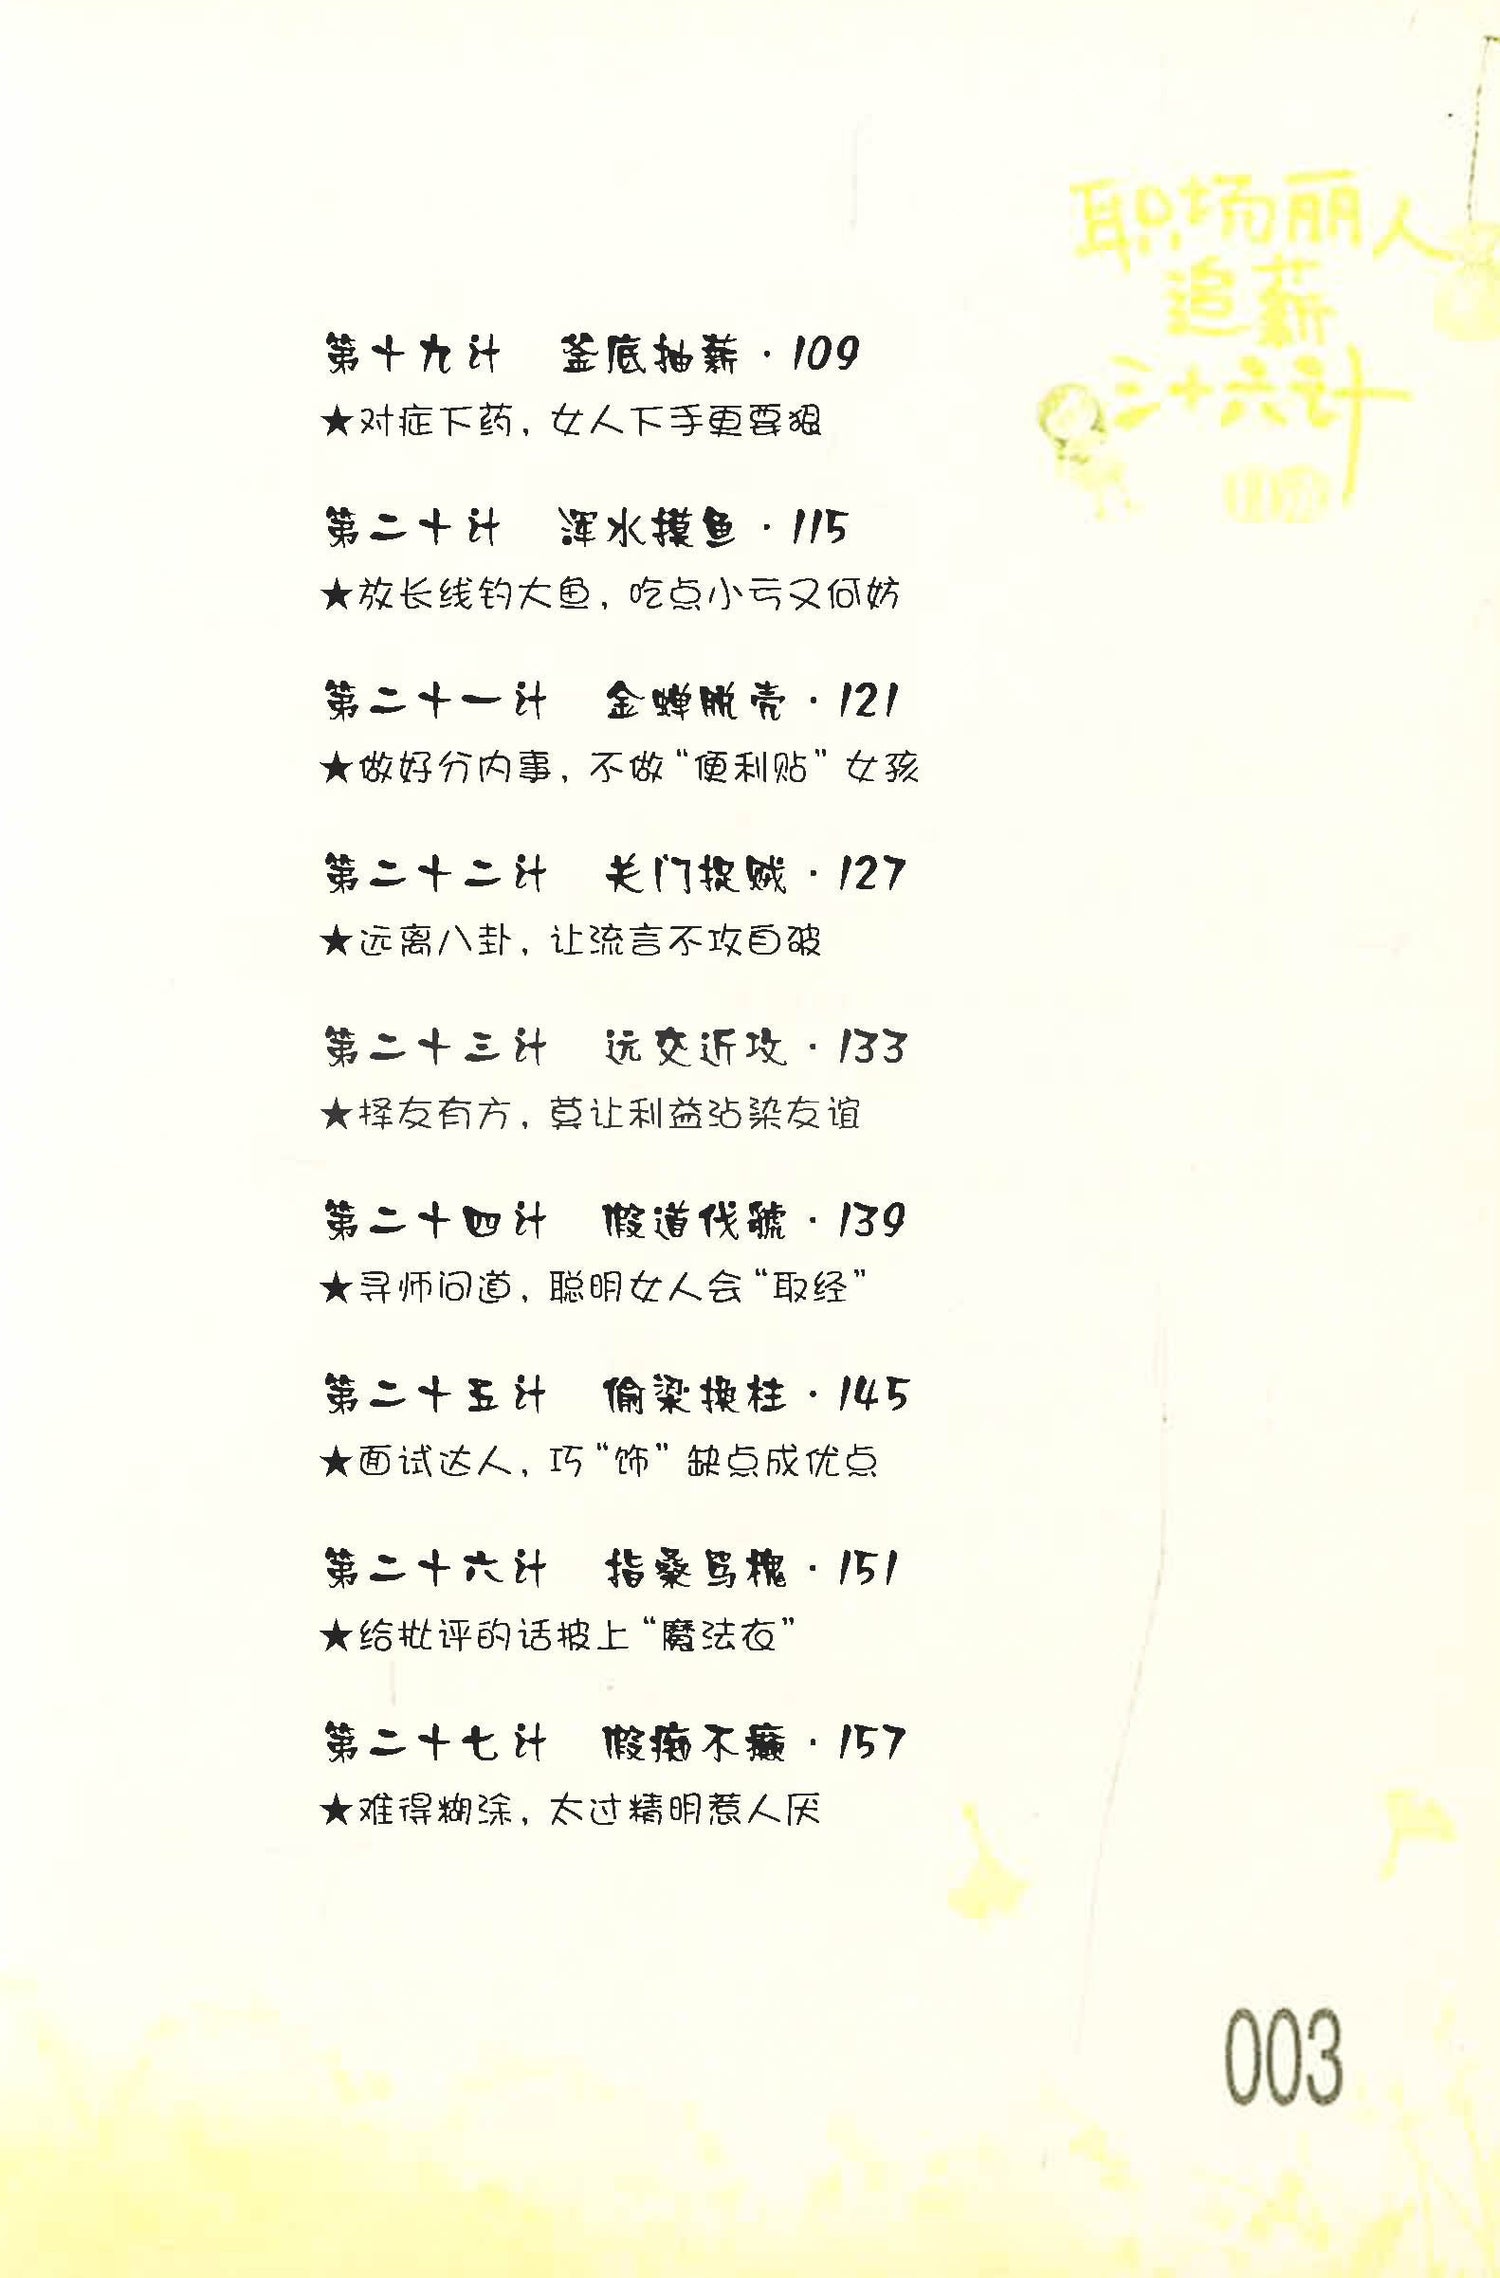 职场丽人
追薪
三十六计
第十九计 釜底抽薪·109
★对症下药，女人下手更要狠
第二十计 浑水摸鱼·115
★放长线钓大鱼，吃点小亏又何妨
第二十一计 金蝉脱壳·121
★做好分内事，不做“便利贴”女孩
第二十二计 关门捉贼·127
★远离八卦，让流言不攻自破
第二十三计 远交近攻·133
★择友有方，莫让利益沾染友谊
第二十四计 假道伐虢·139
★寻师问道，聪明女人会“取经”
第二十五计 偷梁换柱·145
★面试达人，巧“饰”缺点成优点
第二十六计 指桑骂槐·151
★给批评的话披上“魔法衣”
第二十七计 假痴不癫·157
★难得糊涂，太过精明惹人厌
003